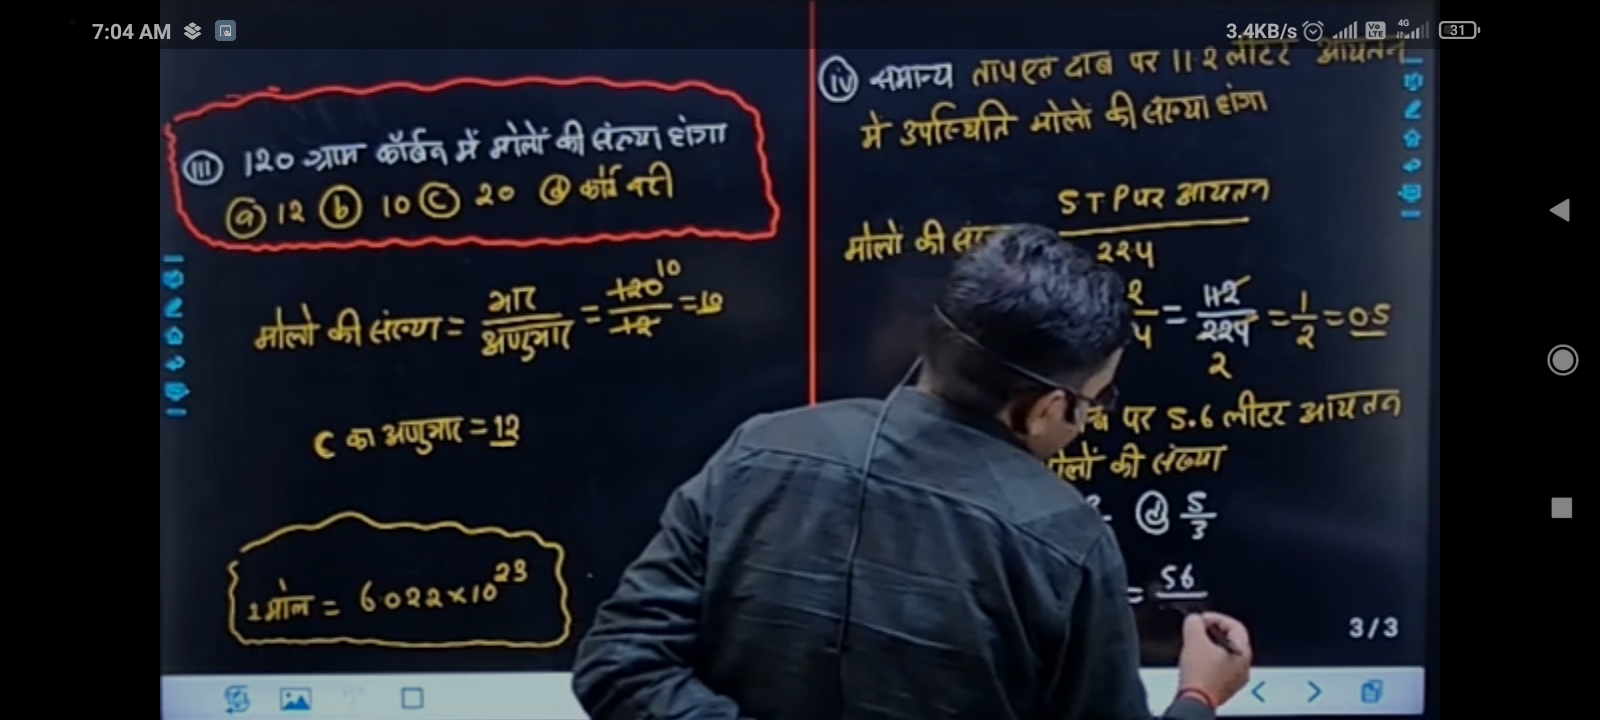 7:04 AM
3.4KB/s Vo LTE 4G 31
(iii) 120 ग्राम कॉर्बन में मोलों की संख्या होगा
(a) 12 (b) 10 (c) 20 (d) कोई नही
मोलो की संख्या = भार / अणुभार = 120 / 12 10 = 10
C का अणुभार = 12
1 मोल = 6022×10^23
(iv) समान्य ताप एत दाब पर 11.2 लीटर आयतन
मे उपस्थिति मोलो की संख्या होगा
मोलो की STP पर आयतन / 224
2 / 4 = 112 / 224 2 = 1/2 = 05
पर 5.6 लीटर आयतन
की संख्या
(d) 5/3
= 56
3/3